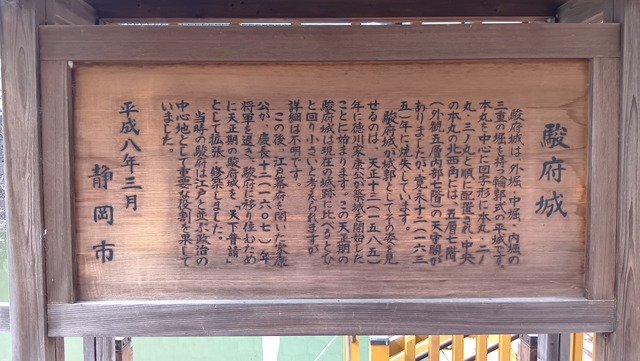 駿府城
駿府城は、外堀・中堀・内堀の
三重の堀を持つ輪郭式の平城です。
本丸を中心に回字形に本丸・二ノ
丸・三ノ丸と順に配置され、中央
の本丸の北西角には、五層七階
（外観五層内部七階）の天守閣が
ありましたが、寛永十二（一六三
五）年に焼失しています。
駿府城が城郭としてその姿を見
せるのは、天正十三（一五八五）
年に徳川家康公が築城を開始した
ことに始まります。この天正期の
駿府城は現在の城跡に比べるとひ
と回り小さいと考えられますが
詳細は不明です。
この後、江戸幕府を開いた家康
公が、慶長十二（一六〇七）年
将軍を退き、駿府に移り住むため
に天正期の駿府城を「天下普請」
として拡張・修築しました。
当時の駿府は江戸と並ぶ政治の
中心地として重要な役割を果して
いました。
平成八年三月
静岡市